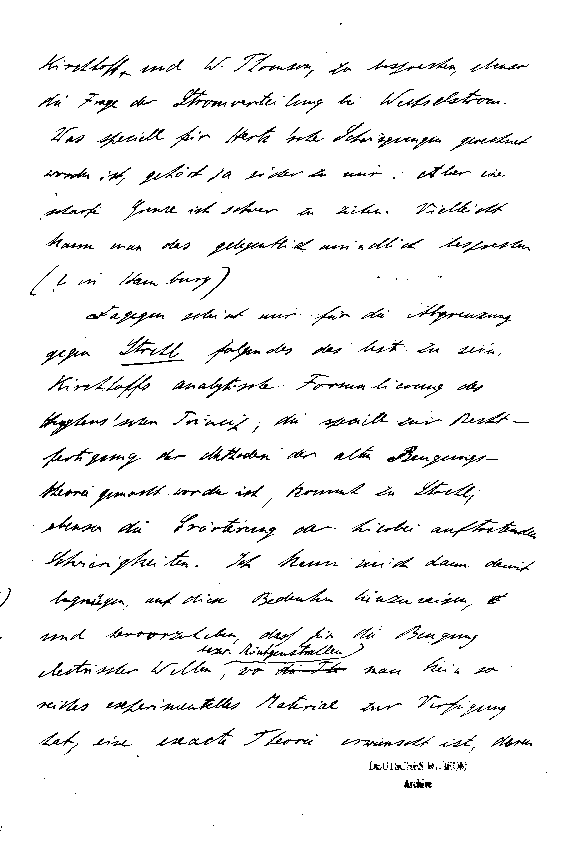 Kirchhoff, und W. Thomson, zu besprechen, ebenso
die Frage der Stromverteilung bei Wechselstrom.
Was speciell für Hertz'sche Schwingungen gerechnet
worden ist, gehört ja sicher zu mir. Aber eine
scharfe Grenze ist schwer zu ziehen. Vielleicht
kann man das gelegentlich mündlich besprechen
(? in Hamburg)
Dagegen scheint mir für die Abgrenzung
gegen Strehl folgendes das best zu sein.
Kirchhoffs analytische Formulierung des
Huyghens'schen Princip, die speciell zur Recht-
fertigung der Methoden der alten Beugungs-
theorie gemacht worden ist, kommt zu Strehl,
ebenso die Erörterung der hierbei auftretenden
Schwierigkeiten. Ich kann mich dann damit
begnügen, auf diese Bedenken hinzuweisen,
und hervorzuheben, daß für die Beugung
bezw. Röntgenstrahlen
electrischer Wellen, wo man kein so
reiches experimentelles Material zur Verfügung
hat, eine exacte Theorie erwünscht ist, deren
DEUTSCHES MUSEUM
Archive